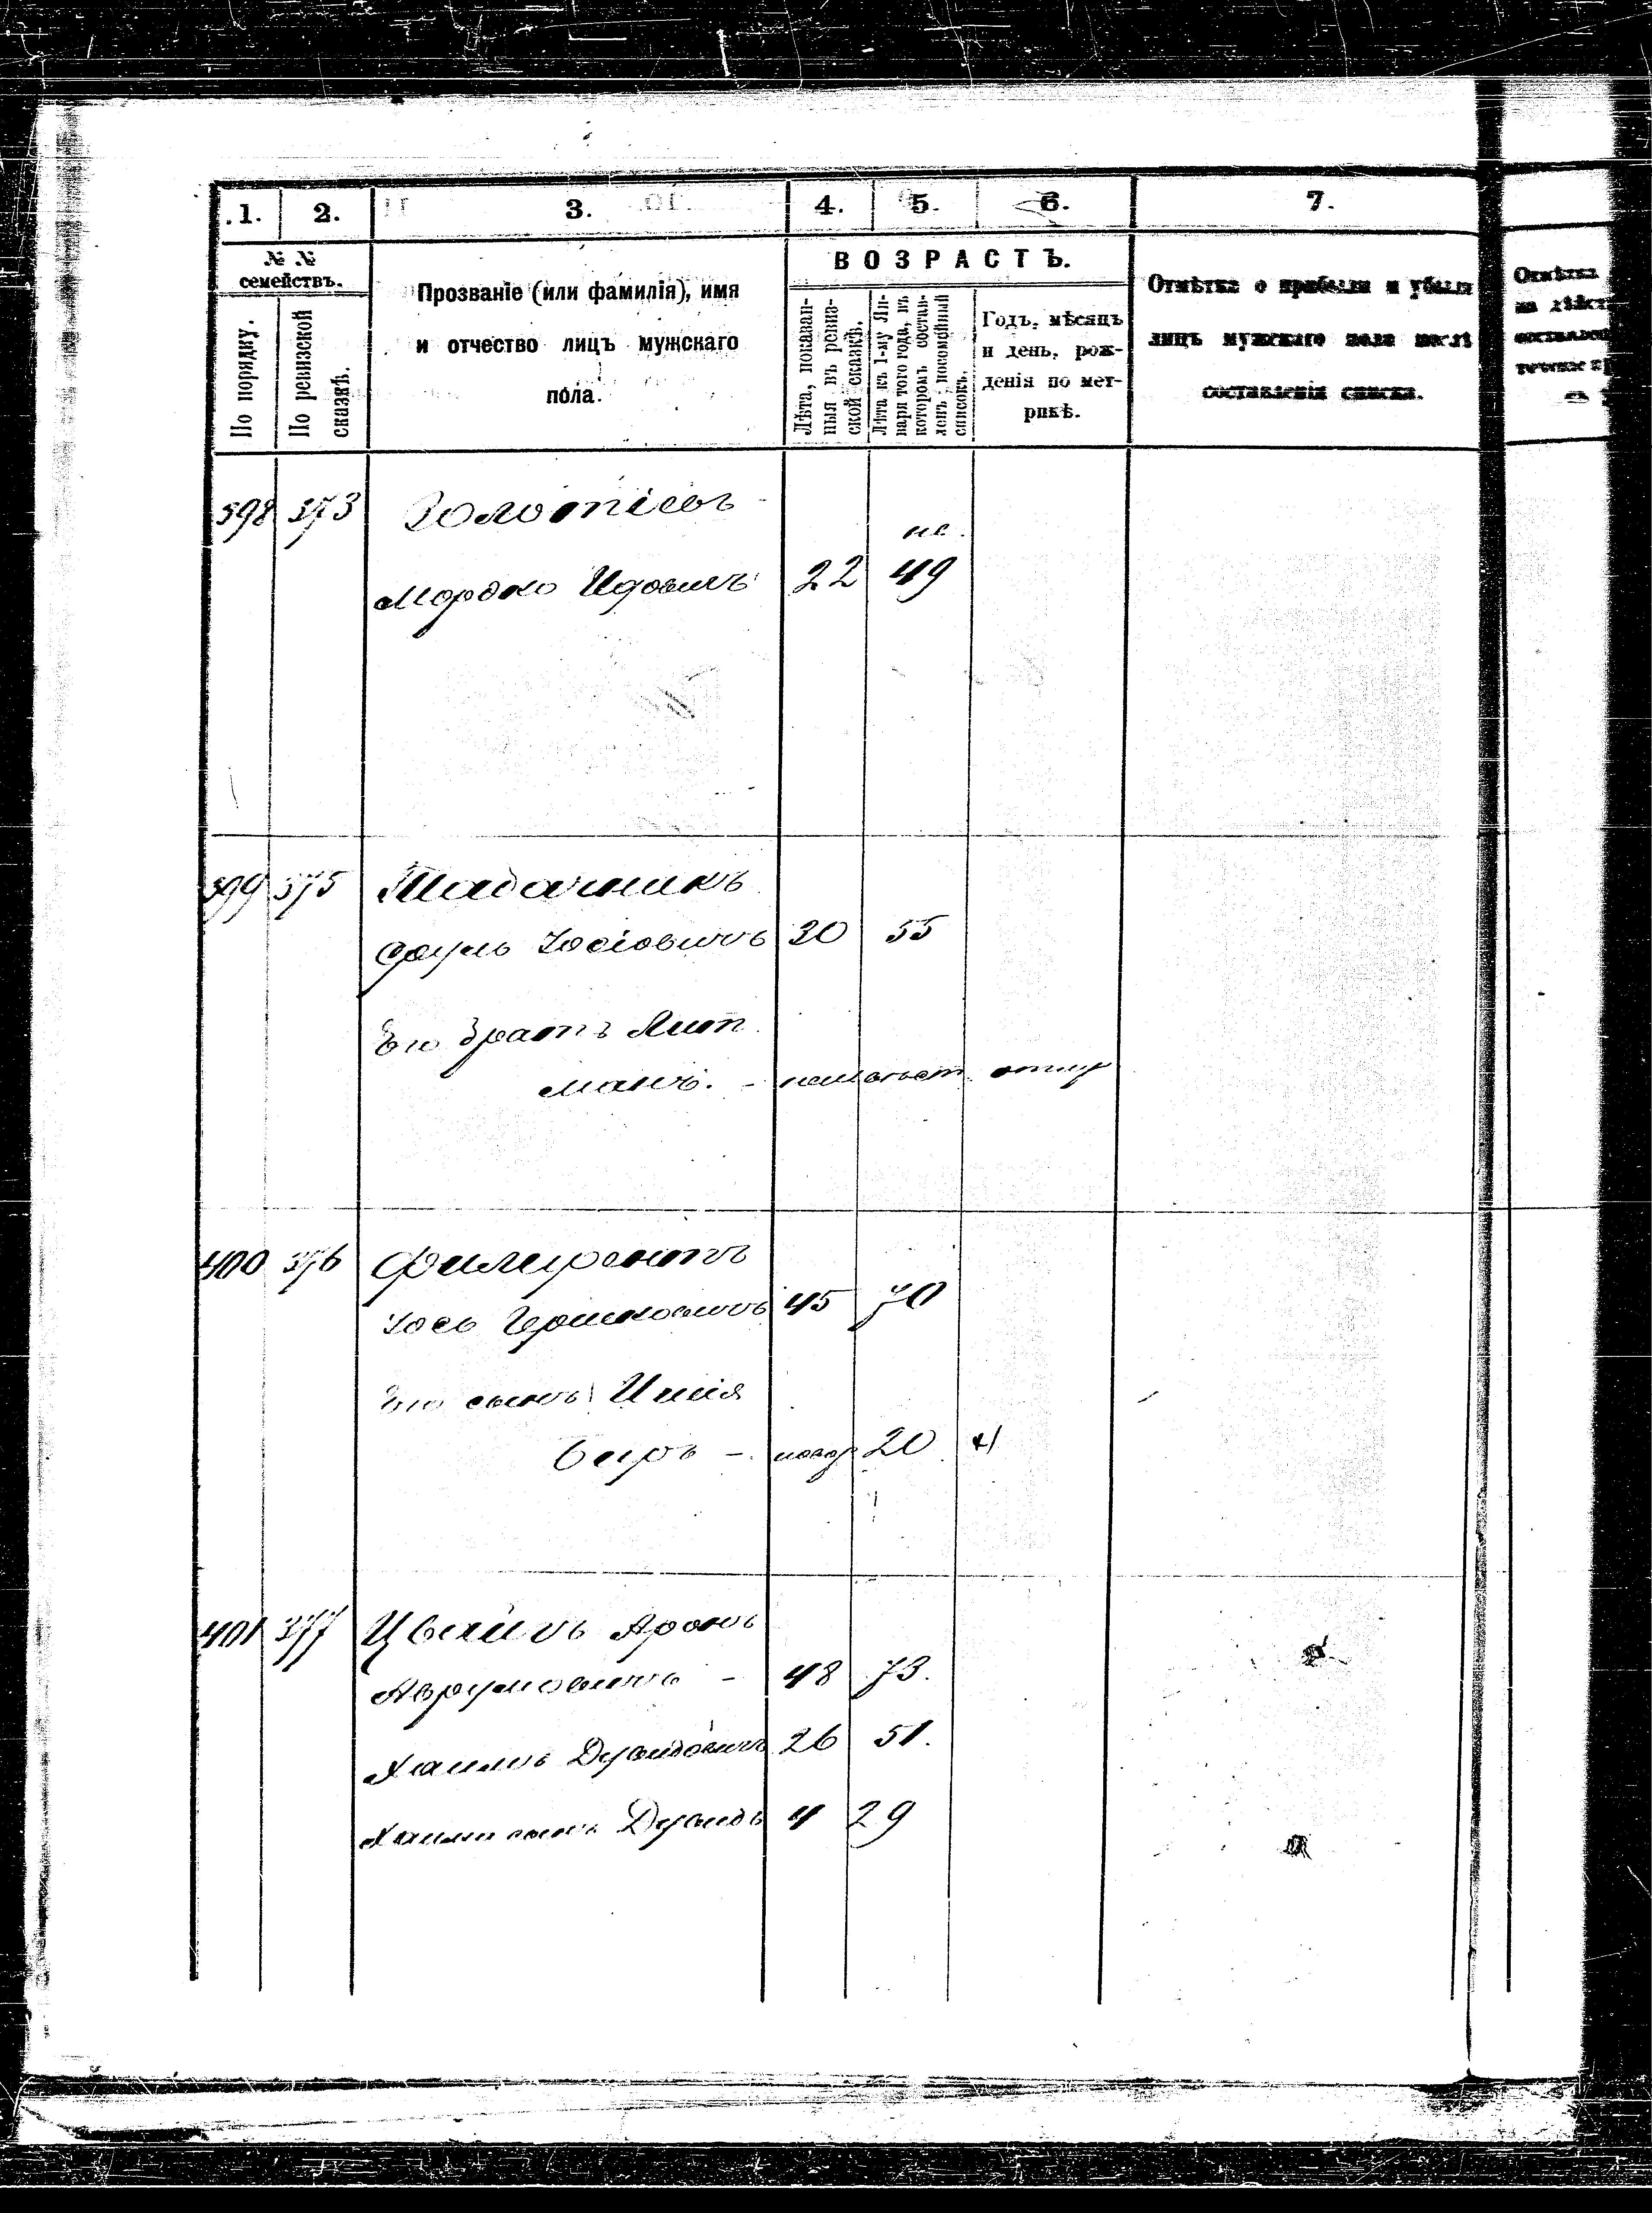 1. 2. 3. 4. 5. 6. 7.
№ №
семействъ.
По порядку.
По ревизской сказкѣ.
Прозваніе (или фамилія), имя
и отчество лицъ мужскаго
пола.
ВОЗРАСТЪ.
Лѣта, показан-
ныя въ ревиз-
ской сказкѣ.
Лѣта къ 1-му Ян-
варя того года, въ
которомъ состав-
ленъ посемейный
списокъ.
Годъ, мѣсяцъ
и день, рож-
денія по мет-
рикѣ.
Отмѣтка о прибыли и убыли
лицъ мужскаго пола послѣ
составленія списка.
398 373
Мордко 22 49
399 375 Табачникъ
Сруль Іосіовичъ 30 55
Его братъ Лит
манъ. -
400 376
Іось Гершковичъ 45 70
Его сынъ
беръ - 20
401 377 Аронъ
Аврумовичъ - 48 73.
Хаимъ Дувидовичъ 26 51.
Хаима сынъ Дувидъ 4 29